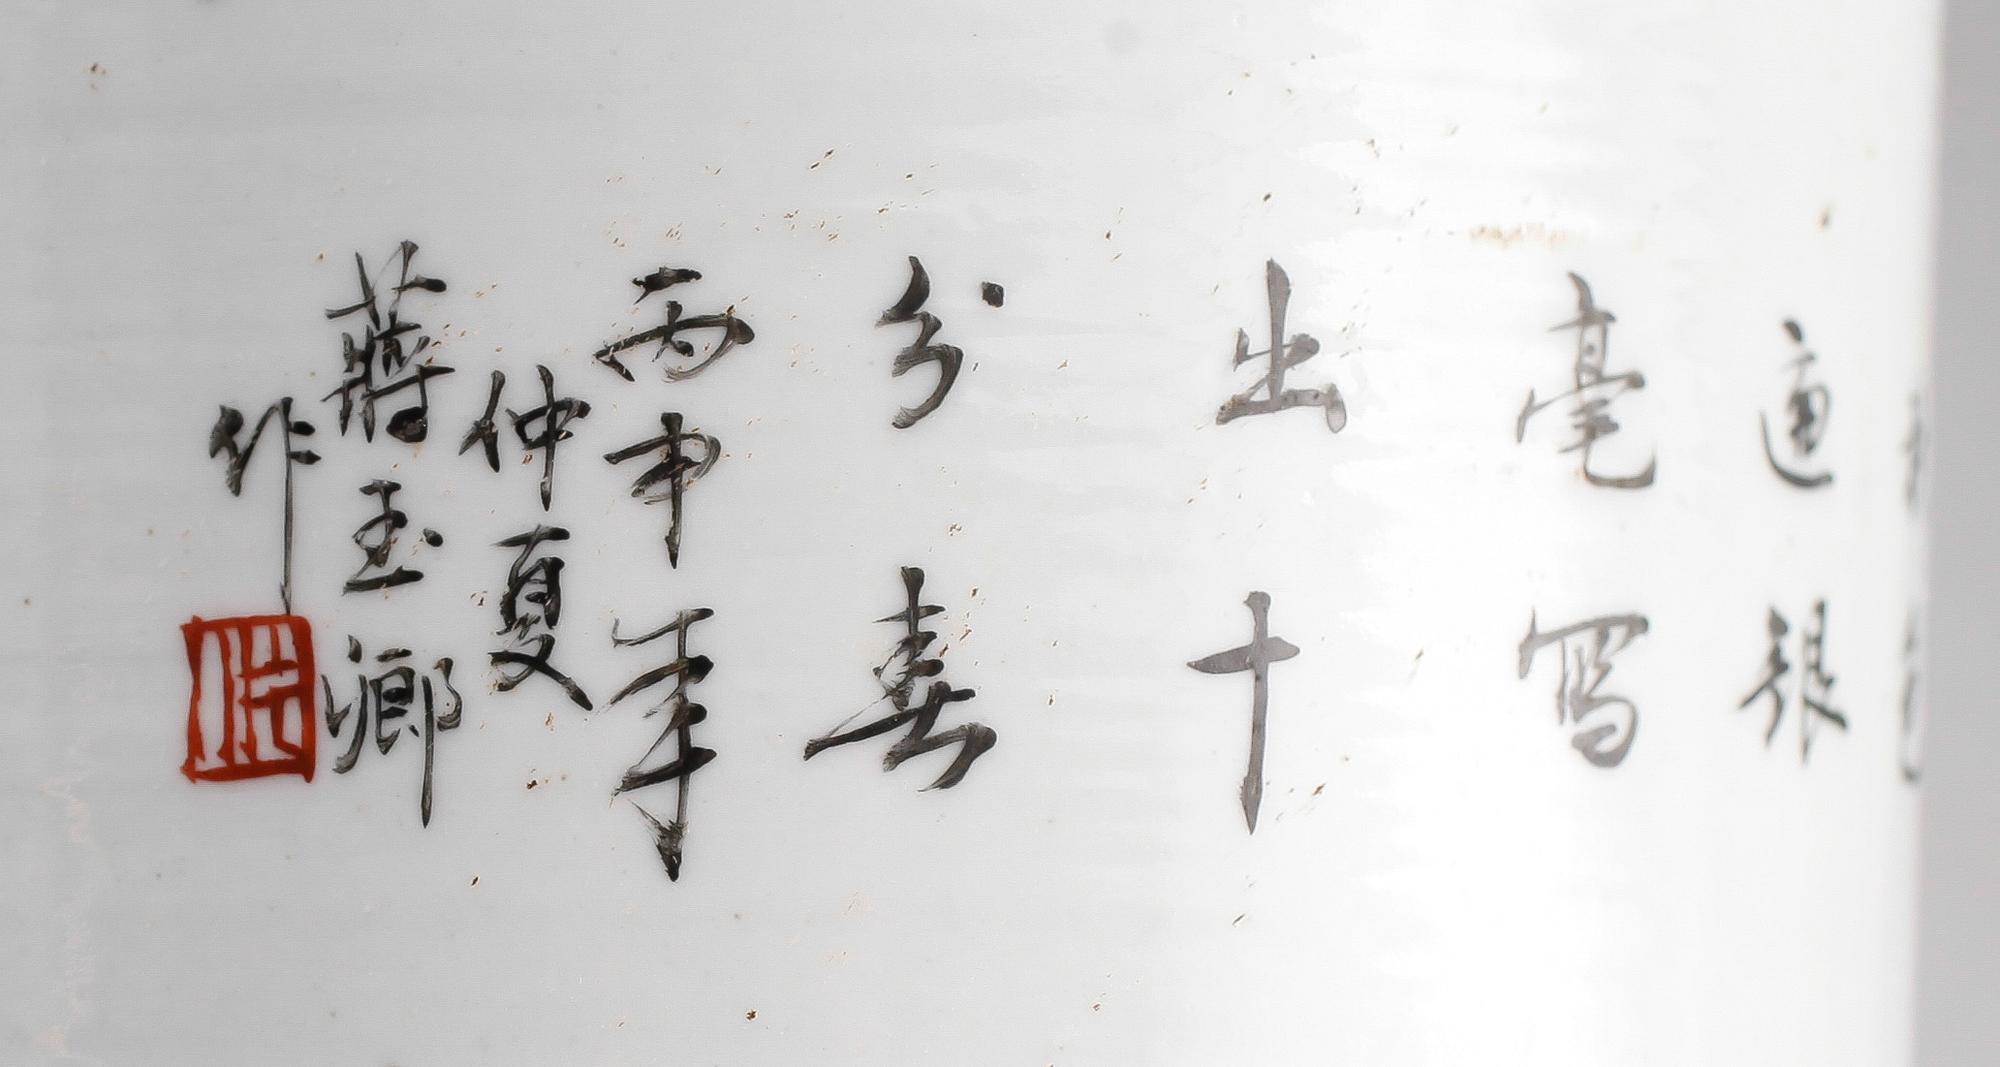 銀
毫寫
出十
分春
丙申年
仲夏
蔣玉卿
作